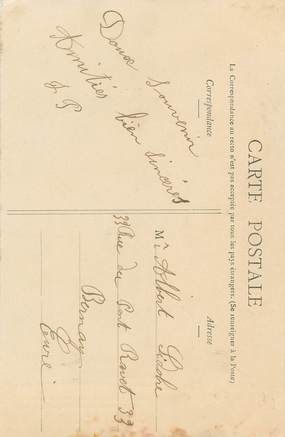 CARTE POSTALE
La Correspondance au recto n'est pas acceptée par tous les pays étrangers. (Se renseigner à la Poste)
Correspondance
Doux Souvenir
Amitiés bien sincères
Adresse
Mr Albert
33 Rue du Pont 33
Bernay
Eure